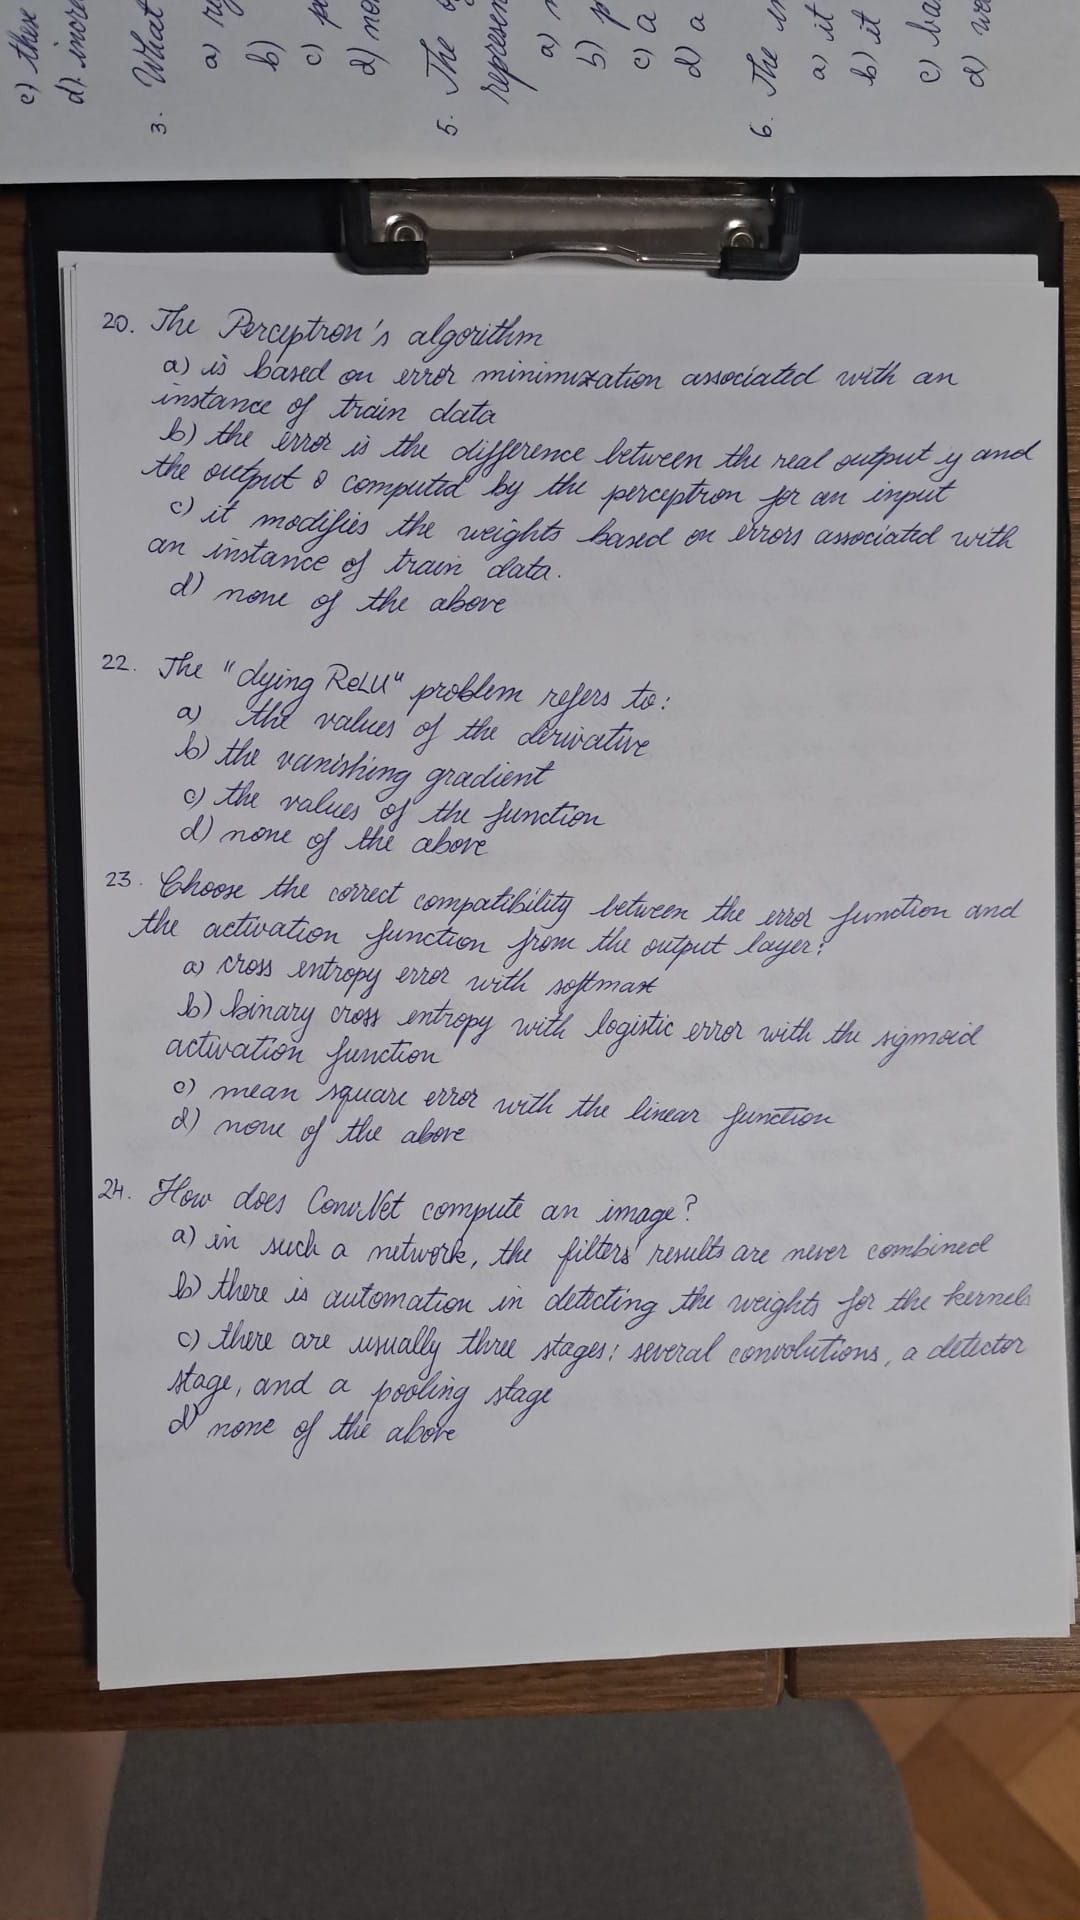 c) these
d). incre
3. What
a) re
b)
c) p
d) no
5. The
represen
a)
b) p
c) a
d) a
6. The in
a) it
b) it
c) ba
d) we
20. The Perceptron's algorithm
a) is based on error minimization associated with an
instance of train data
b) the error is the difference between the real output y and
the output o computed by the perceptron for an input
c) it modifies the weights based on errors associated with
an instance of train data.
d) none of the above
22. The "dying ReLU" problem refers to:
a) the values of the derivative
b) the vanishing gradient
c) the values of the function
d) none of the above
23. Choose the correct compatibility between the error function and
the activation function from the output layer:
a) cross entropy error with softmax
b) binary cross entropy with logistic error with the sigmoid
activation function
c) mean square error with the linear function
d) none of the above
24. How does ConvNet compute an image?
a) in such a network, the filters' results are never combined
b) there is automation in detecting the weights for the kernels
c) there are usually three stages: several convolutions, a detector
stage, and a pooling stage
d) none of the above